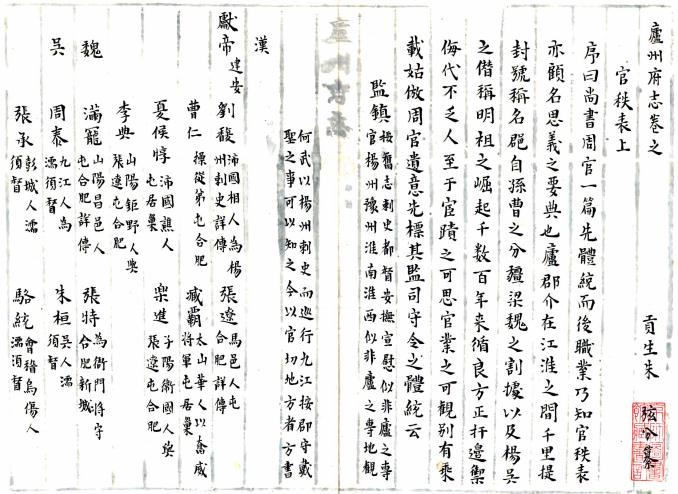 廬州府志卷之
官秩表上
貢生朱弦分纂
序曰尚書周官一篇先體統而後職業乃知官秩表
亦顧名思義之要典也廬郡介在江淮之間千里提
封號稱名郡自孫曹之分疆梁魏之割據以及楊吳
之僭稱明祖之崛起千数百年来循良方正扞邊禦
侮代不乏人至于宦蹟之可思官業之可觀别有乘
載姑倣周官遺意先標其監司守令之體統云
監鎮
按舊志刺史都督安撫宣慰似非廬之專
官楊州豫州淮南淮西似非廬之專地觀
何武以楊州刺史而巡行九江按郡守戴
聖之事可以知之今以官切地方者方書
漢
獻帝
建安
劉馥
沛國相人為楊
州刺史詳傳
張遼
馬邑人屯
合肥詳傳
曹仁
操從弟屯合肥
臧霸
太山華人以奮威
將軍屯居巢
夏侯惇
沛國譙人
屯居巢
樂進
子陽衛國人與
張遼屯合肥
李典
山陽鉅野人與
張遼屯合肥
魏
滿寵
山陽昌邑人
屯合肥詳傳
張特
為衙門將守
合肥新城
吳
周泰
九江人為
濡須督
朱桓
吳人濡
須督
張承
彭城人濡
須督
駱統
會稽烏傷人
濡須督